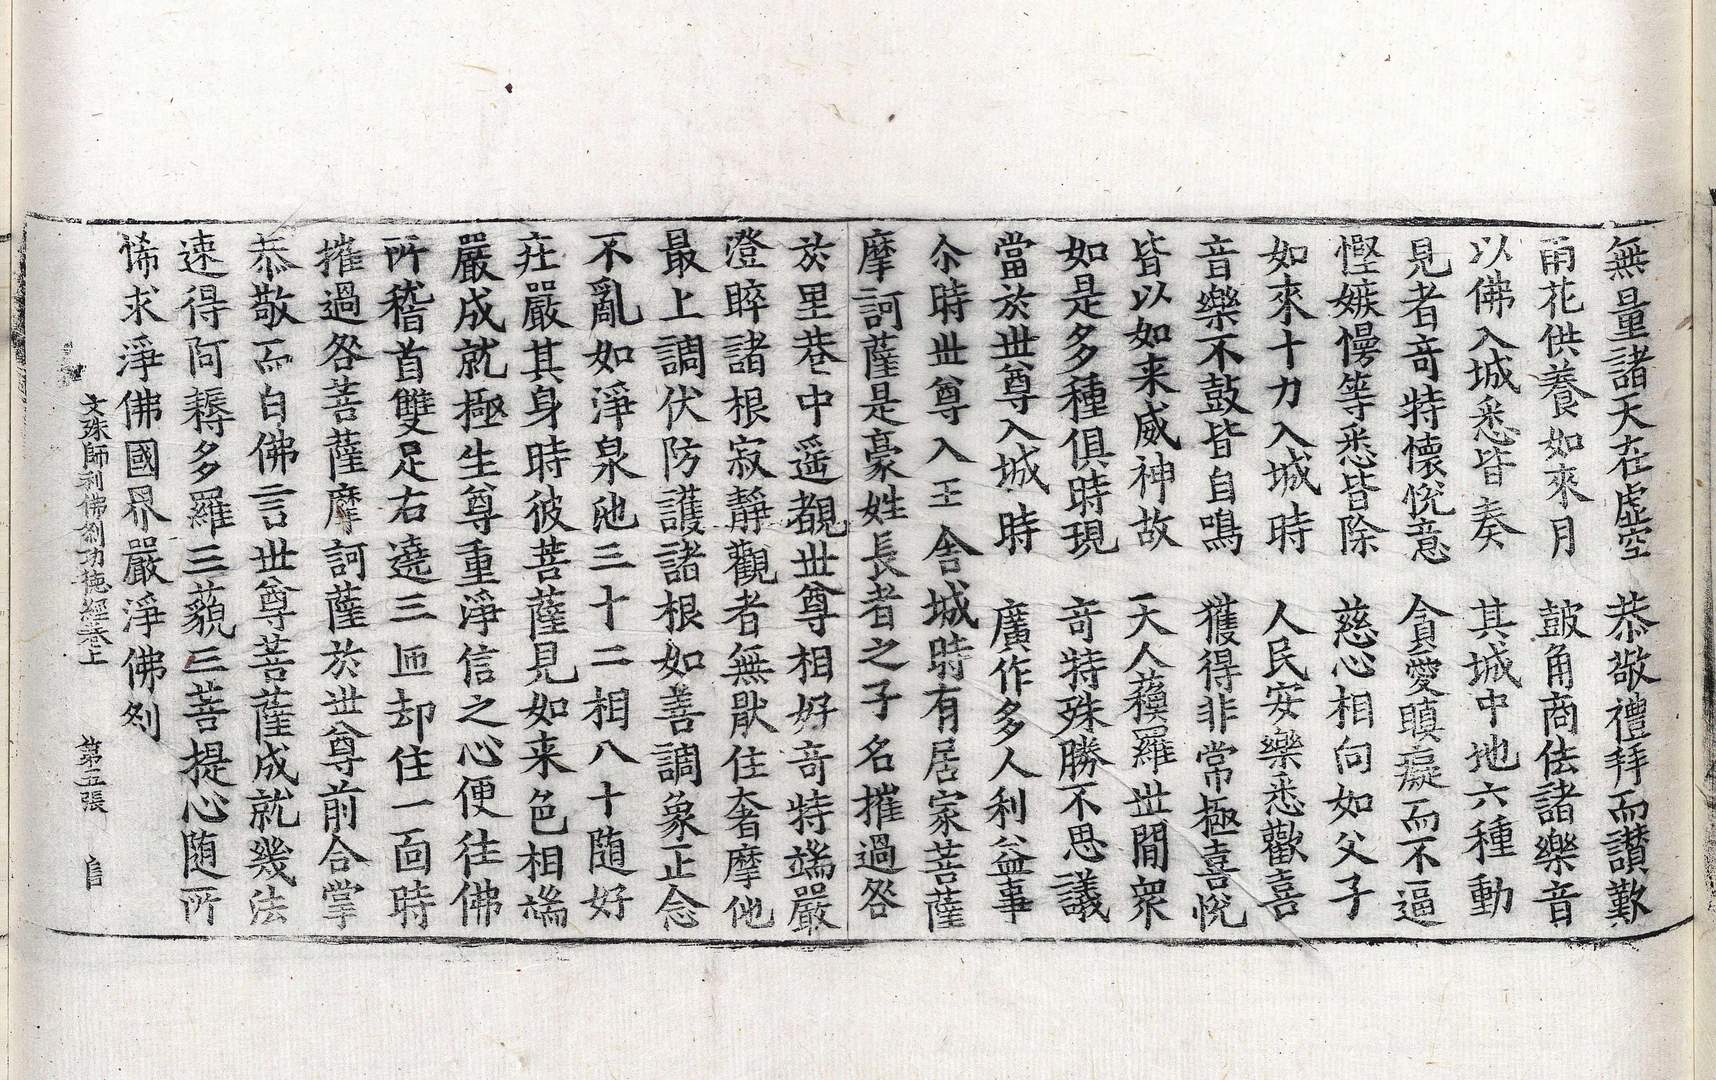 無量諸天在虛空　恭敬禮拜而讃歎
雨花供養如來月　皷角商佉諸樂音
以佛入城悉皆奏　其城中地六種動
見者竒特懷悅意　貪愛瞋癡而不逼
慳嫉慢等悉皆除　慈心相向如父子
如來十力入城時　人民安樂悉歡喜
音樂不鼓皆自鳴　獲得非常極喜悅
皆以如来威神故　天人蘓羅世間衆
如是多種俱時現　竒特殊勝不思議
當於世尊入城時　廣作多人利益事
尒時世尊入王舍城時有居家菩薩
摩訶薩是豪姓長者之子名摧過咎
於里巷中遥覩世尊相好竒特端嚴
澄睟諸根寂靜觀者無猒住奢摩他
最上調伏防護諸根如善調象正念
不亂如淨泉池三十二相八十随好
莊嚴其身時彼菩薩見如来色相端
嚴成就極生尊重淨信之心便往佛
所稽首雙足右遶三匝却住一面時
摧過咎菩薩摩訶薩於世尊前合掌
恭敬而白佛言世尊菩薩成就幾法
速得阿耨多羅三藐三菩提心随所
悕求淨佛國界嚴淨佛刹
文殊師利佛刹功德經卷上　第五張　信